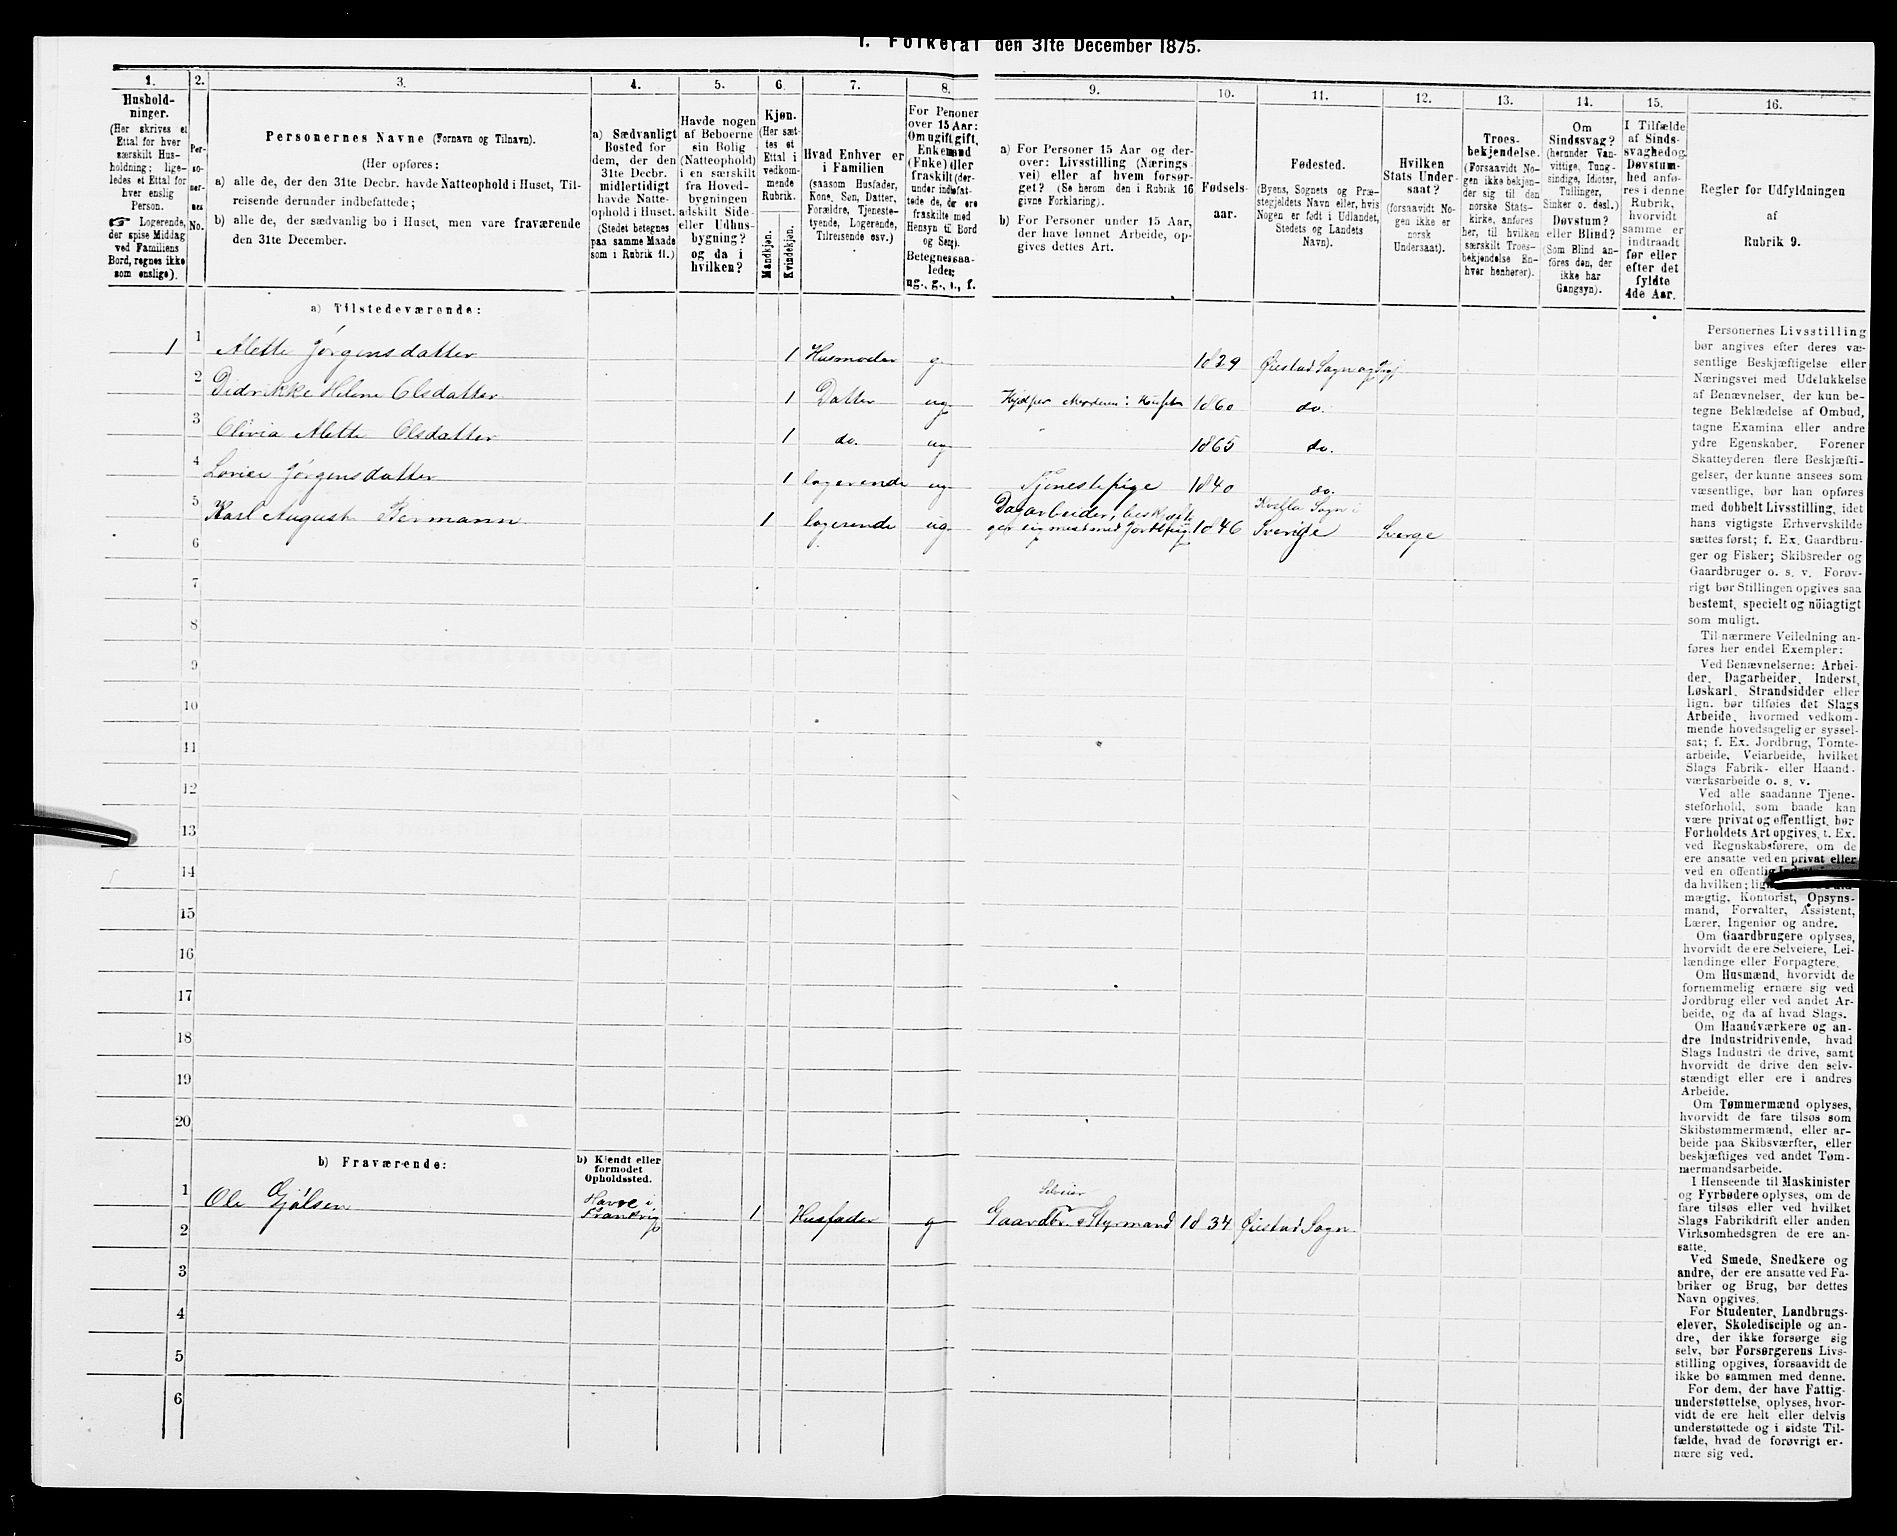 I. Folketal den 31te December 1875.
1.
Hushold-
ninger.
(Her skrives et
Ettal for hver
særskilt Hus-
holdning; lige-
ledes et Ettal for
hver enslig
Person.
☞ Logerende,
der spise Middag
ved Familiens
Bord, regnes ikke
som enslige).
2.
Per-
so-
ner-
nes
No.
3.
Personernes Navne (Fornavn og Tilnavn).
(Her opføres:
a) alle de, der den 31te Decbr. havde Natteophold i Huset, Til-
reisende derunder indbefattede;
b) alle de, der sædvanlig bo i Huset, men vare fraværende
den 31te December.
4.
a) Sædvanligt
Bosted for
dem, der den
31te Decbr.
midlertidigt
havde Natte-
ophold i Huset.
(Stedet betegnes
paa samme Maade
som i Rubrik 11.)
5.
Havde nogen
af Beboerne
sin Bolig
(Natteophold)
i en særskilt
fra Hoved-
bygningen
adskilt Side-
eller Udhus-
bygning?
og da i
hvilken?
6.
Kjøn.
(Her sæt-
tes et
Ettal i
vedkom-
mende
Rubrik.
Mandkjøn.
Kvindekjøn.
7.
Hvad Enhver er
i Familien
(saasom Husfader,
Kone, Søn, Datter,
Forældre, Tjeneste-
tyende, Logerende,
Tilreisende osv.)
8.
For Personer
over 15 Aar:
Om ugift, gift,
Enkemand
(Enke) eller
fraskilt (der-
under indbefat-
tede de, der ere
fraskilte med
Hensyn til Bord
og Seng).
Betegnes saa-
ledes:
ug., g., e., f.
9.
a) For Personer 15 Aar og der-
over: Livsstilling (Nærings-
vei) eller af hvem forsør-
get? (Se herom den i Rubrik 16
givne Forklaring).
b) For Personer under 15 Aar,
der have lønnet Arbeide, op-
gives dettes Art.
10.
Fødsels-
aar.
11.
Fødested.
(Byens, Sognets og Præ-
stegjeldets Navn eller, hvis
Nogen er født i Udlandet,
Stedets og Landets
Navn).
12.
Hvilken
Stats Under-
saat?
(forsaavidt No-
gen ikke er
norsk
Undersaat).
13.
Troes-
bekjendelse.
(Forsaavidt No-
gen ikke bekjen-
der sig til den
norske Stats-
kirke, anføres
her, til hvilken
særskilt Troes-
bekjendelse En-
hver henhører).
14.
Om
Sindssvag?
(herunder Van-
vittige, Tung-
sindige, Idioter,
Tullinger,
Sinker o. desl.)
Døvstum?
eller Blind?
(Som Blind an-
føres den, der
ikke har
Gangsyn).
15.
I Tilfælde
af Sinds-
svaghed og
Døvstum-
hed anfø-
res i denne
Rubrik,
hvorvidt
samme er
indtraadt
før eller
efter det
fyldte
4de Aar.
16.
Regler for Udfyldningen
af
Rubrik 9.
a) Tilstedeværende:
1 1 Alette Jørgensdatter 1 Husmoder g 1829 Øiestad Sogn og Prgj
2 Didrikke Helene Olsdatter 1 Datter ug Hjælper Moderen i Huset 1860 do.
3 Olivia Alette Olsdatter 1 do. ug 1865 do.
4 Lovise Jørgensdatter 1 logerende ug Tjenestepige 1840 do.
5 Karl August Bermann 1 logerende ug Dagarbeider, beskjæfti-
ger sig mest med Jordbrug 1846 Kvilla Sogn i
Sverige Sverge
6
7
8
9
10
11
12
13
14
15
16
17
18
19
20
b) Fraværende:
b) Kjendt eller
formodet
Opholdssted.
1 Ole Gjølsen Havre i
Frankrig 1 Husfader g Selveier
Gaardbr. & Styrmand 1834 Øiestad Sogn
2
3
4
5
6
Personernes Livsstilling
bør angives efter deres væ-
sentlige Beskjæftigelse eller
Næringsvei med Udelukkelse
af Benævnelser, der kun be-
tegne Beklædelse af Ombud,
tagne Examina eller andre
ydre Egenskaber. Forener
Skatteyderen flere Beskjæfti-
gelser, der kunne ansees som
væsentlige, bør han opføres
med dobbelt Livsstilling, idet
hans vigtigste Erhvervskilde
sættes først; f. Ex. Gaardbru-
ger og Fisker; Skibsreder og
Gaardbruger o. s. v. Forøv-
rigt bør Stillingen opgives saa
bestemt, specielt og nöiagtigt
som muligt.
Til nærmere Veiledning an-
føres her endel Exempler:
Ved Benævnelserne: Arbei-
der, Dagarbeider, Inderst,
Løskarl, Strandsidder eller
lign. bør tilføies det Slags
Arbeide, hvormed vedkom-
mende hovedsagelig er syssel-
sat; f. Ex. Jordbrug, Tomte-
arbeide, Veiarbeide, hvilket
Slags Fabrik- eller Haand-
værksarbeide o. s. v.
Ved alle saadanne Tjene-
steforhold, som baade kan
være privat og offentligt, bør
Forholdets Art opgives, t. Ex.
ved Regnskabsførere, om de
ere ansatte ved en privat eller
ved en offentlig
da hvilken;
mægtig, Kontorist, Opsyns-
mand, Forvalter, Assistent,
Lærer, Ingeniør og andre.
Om Gaardbrugere oplyses,
hvorvidt de ere Selveiere, Lei-
lændinge eller Forpagtere.
Om Husmænd, hvorvidt de
fornemmelig ernære sig ved
Jordbrug eller ved andet Ar-
beide, og da af hvad Slags.
Om Haandværkere og an-
dre Industridrivende, hvad
Slags Industri de drive, samt
hvorvidt de drive den selv-
stændigt eller ere i andres
Arbeide.
Om Tømmermænd oplyses,
hvorvidt de fare tilsøs som
Skibstømmermænd, eller ar-
beide paa Skibsværfter, eller
beskjæftiges ved andet Tøm-
mermandsarbeide.
I Henseende til Maskinister
og Fyrbødere oplyses, om de
fare tilsøs eller ved hvilket
Slags Fabrikdrift eller anden
Virksomhedsgren de ere an-
satte.
Ved Smede, Snedkere og
andre, der ere ansatte ved Fa-
briker og Brug, bør dettes
Navn opgives.
For Studenter, Landbrugs-
elever, Skoledisciple og an-
dre, der ikke forsørge sig
selv, bør Forsørgerens Livs-
stilling opgives, forsaavidt de
ikke bo sammen med denne.
For dem, der have Fattig-
understøttelse, oplyses, hvor-
vidt de ere helt eller delvis
understøttede og i sidste Til-
fælde, hvad de forøvrigt er-
nære sig ved.